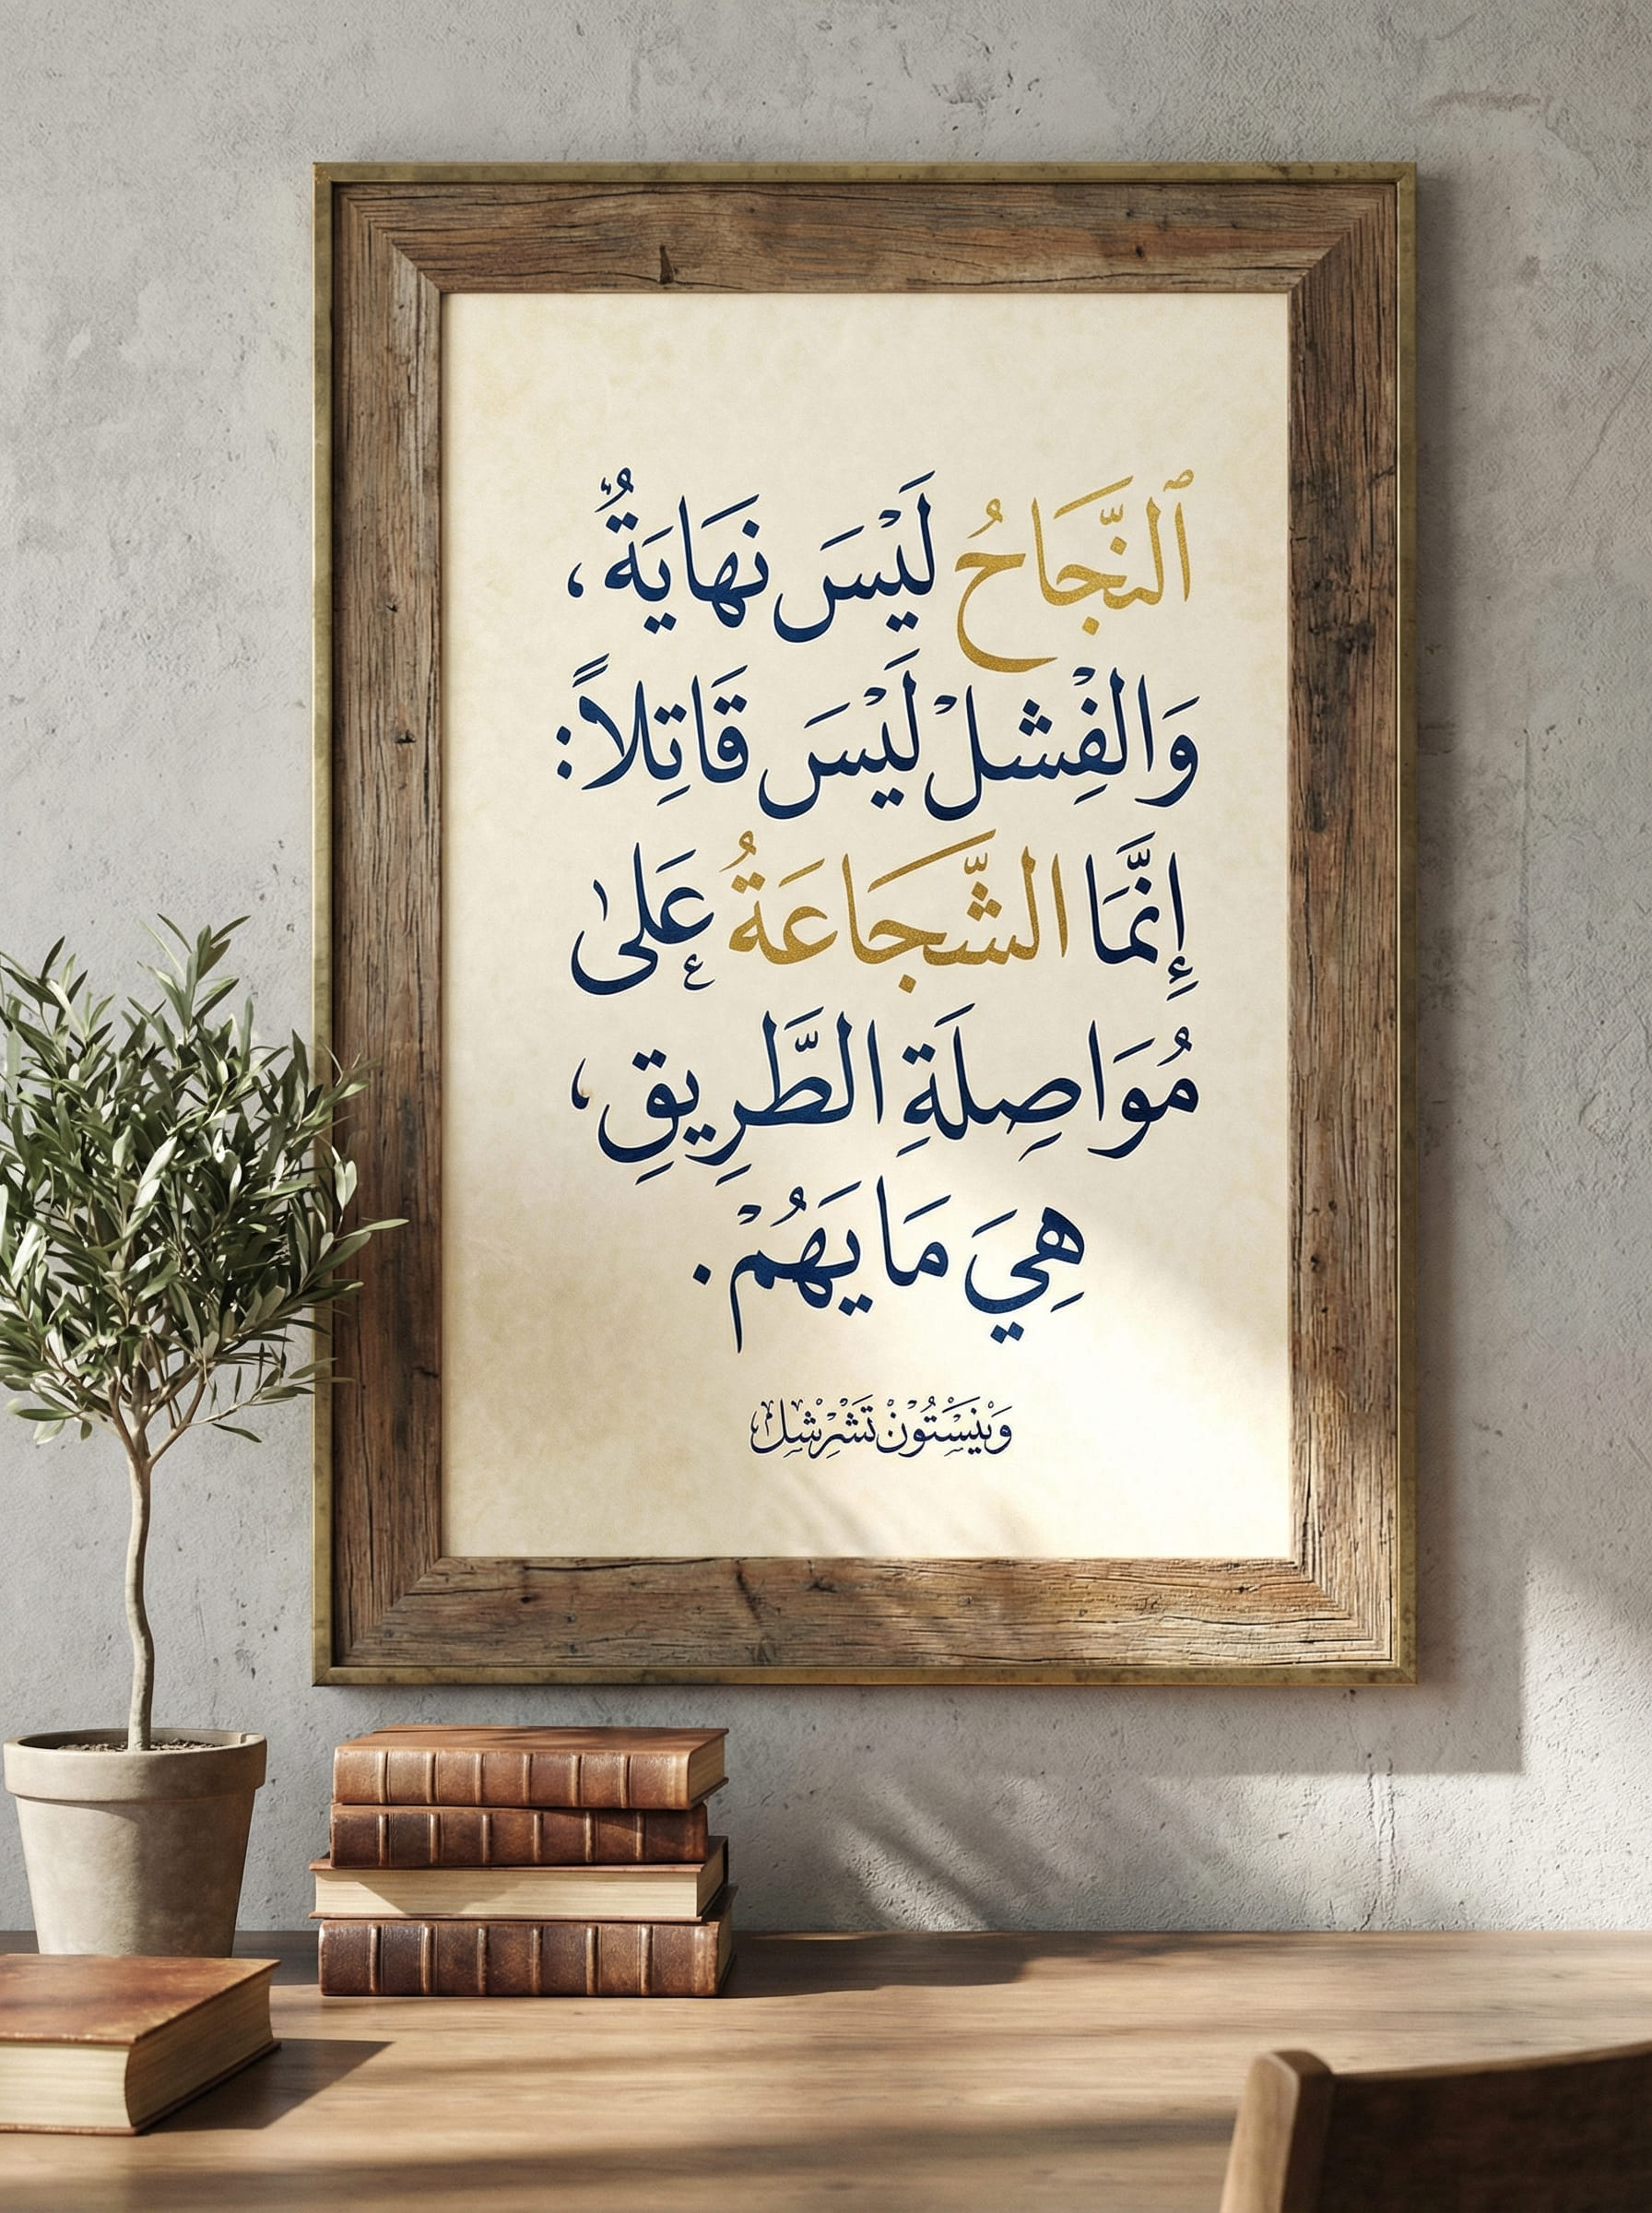 ٱلنَّجَاحُ لَيْسَ نَهَايَةٌ،
وَالْفِشلْ لَيْسَ قَاتِلاً:
إِنَّمَا الشَّجَاعَةُ عَلىٰ
مُوَاصِلَةِ الطَّرِيقِ،
هِيَ مَا يَهُمْ.
وَيْنِسْتُونْ تَشْرْشِلْ